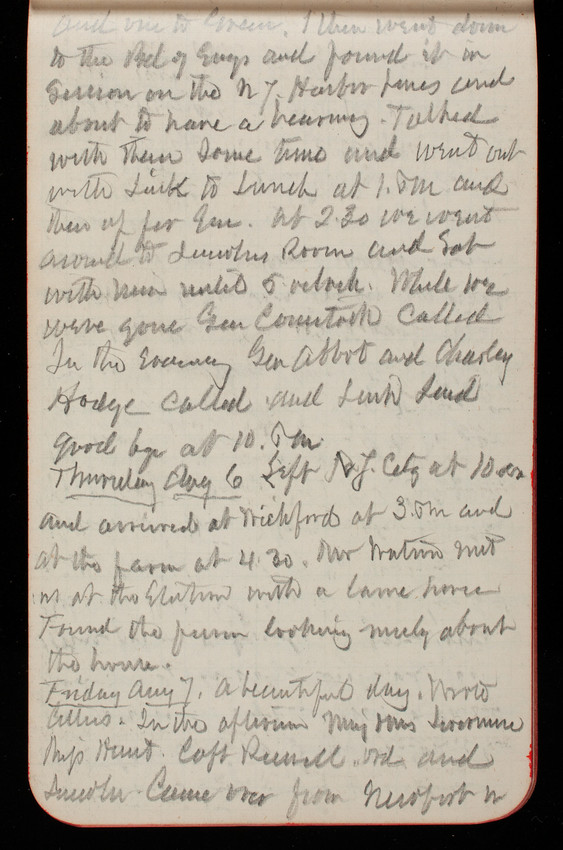 and one to Green. I then went down
to the Bd of Engs and found it in
Session on the N Y. Harbor Lines and
about to have a hearing. Talked
with them some time and went out
with Link to Lunch at 1. P.M and
then up for Gen. At 2.30 we went
around to Lincolns Room and Sat
with him until 5 oclock. While we
were gone Gen Comstock Called
In the Evening Gen Abbot and Charley
Hodge called and Link Said
good bye at 10. P.M.
Thursday Aug 6 Left N.Y. City at 10 am
and arrived at Wickford at 3. P.M and
at the farm at 4.30. Mr Watson met
us at the Station with a lame horse
Found the farm looking nicely about
the house.
Friday Aug 7. A beautiful day. Wrote
letters. In the afternoon Maj
Miss Hunt. Capt Russell. Ord. and
Lincoln Came over from Newport in